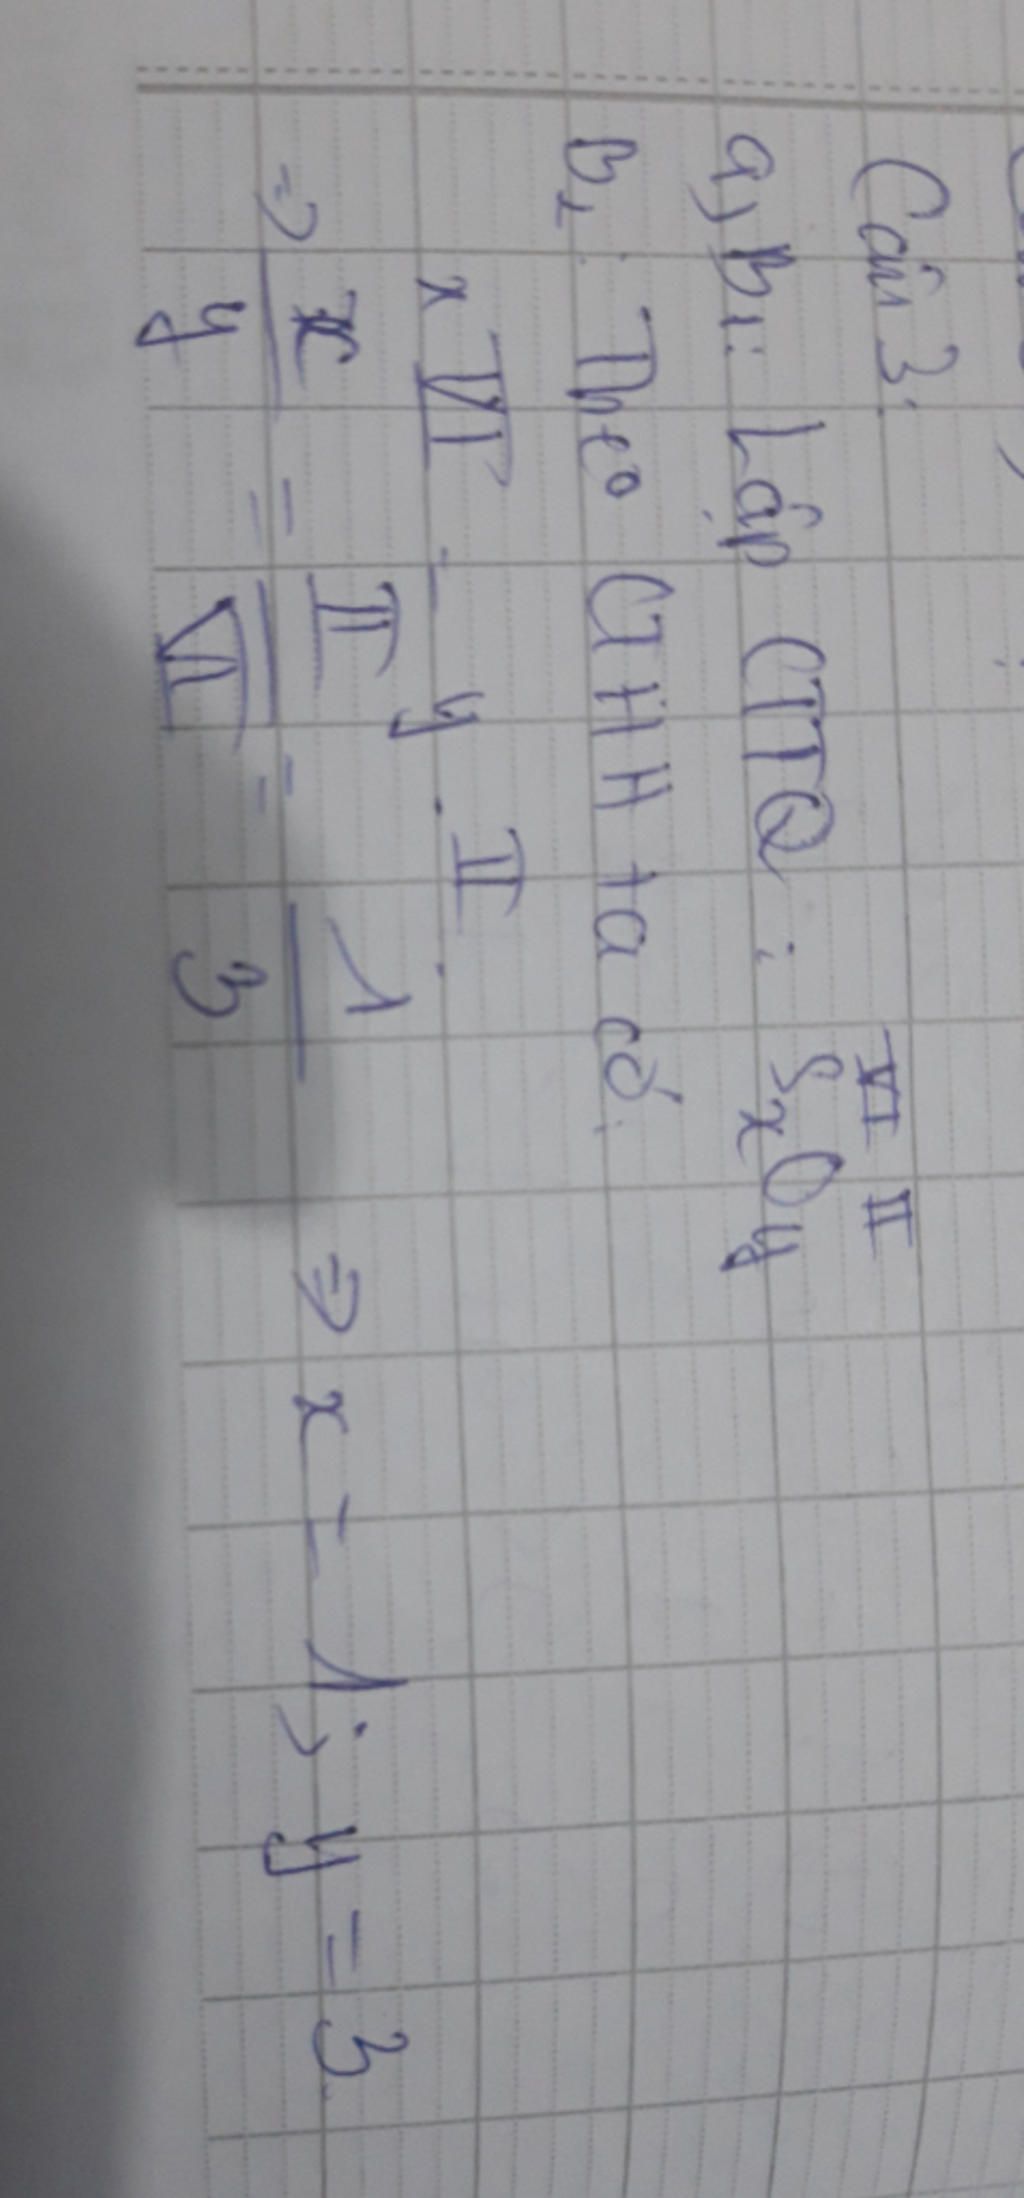 Câu 3.
a) B1: Lập CTTQ : SxOy
VI II
B2 : Theo CTHH ta có:
x VI = y . II
=> x/y = II/VI = 1/3 => x = 1; y = 3